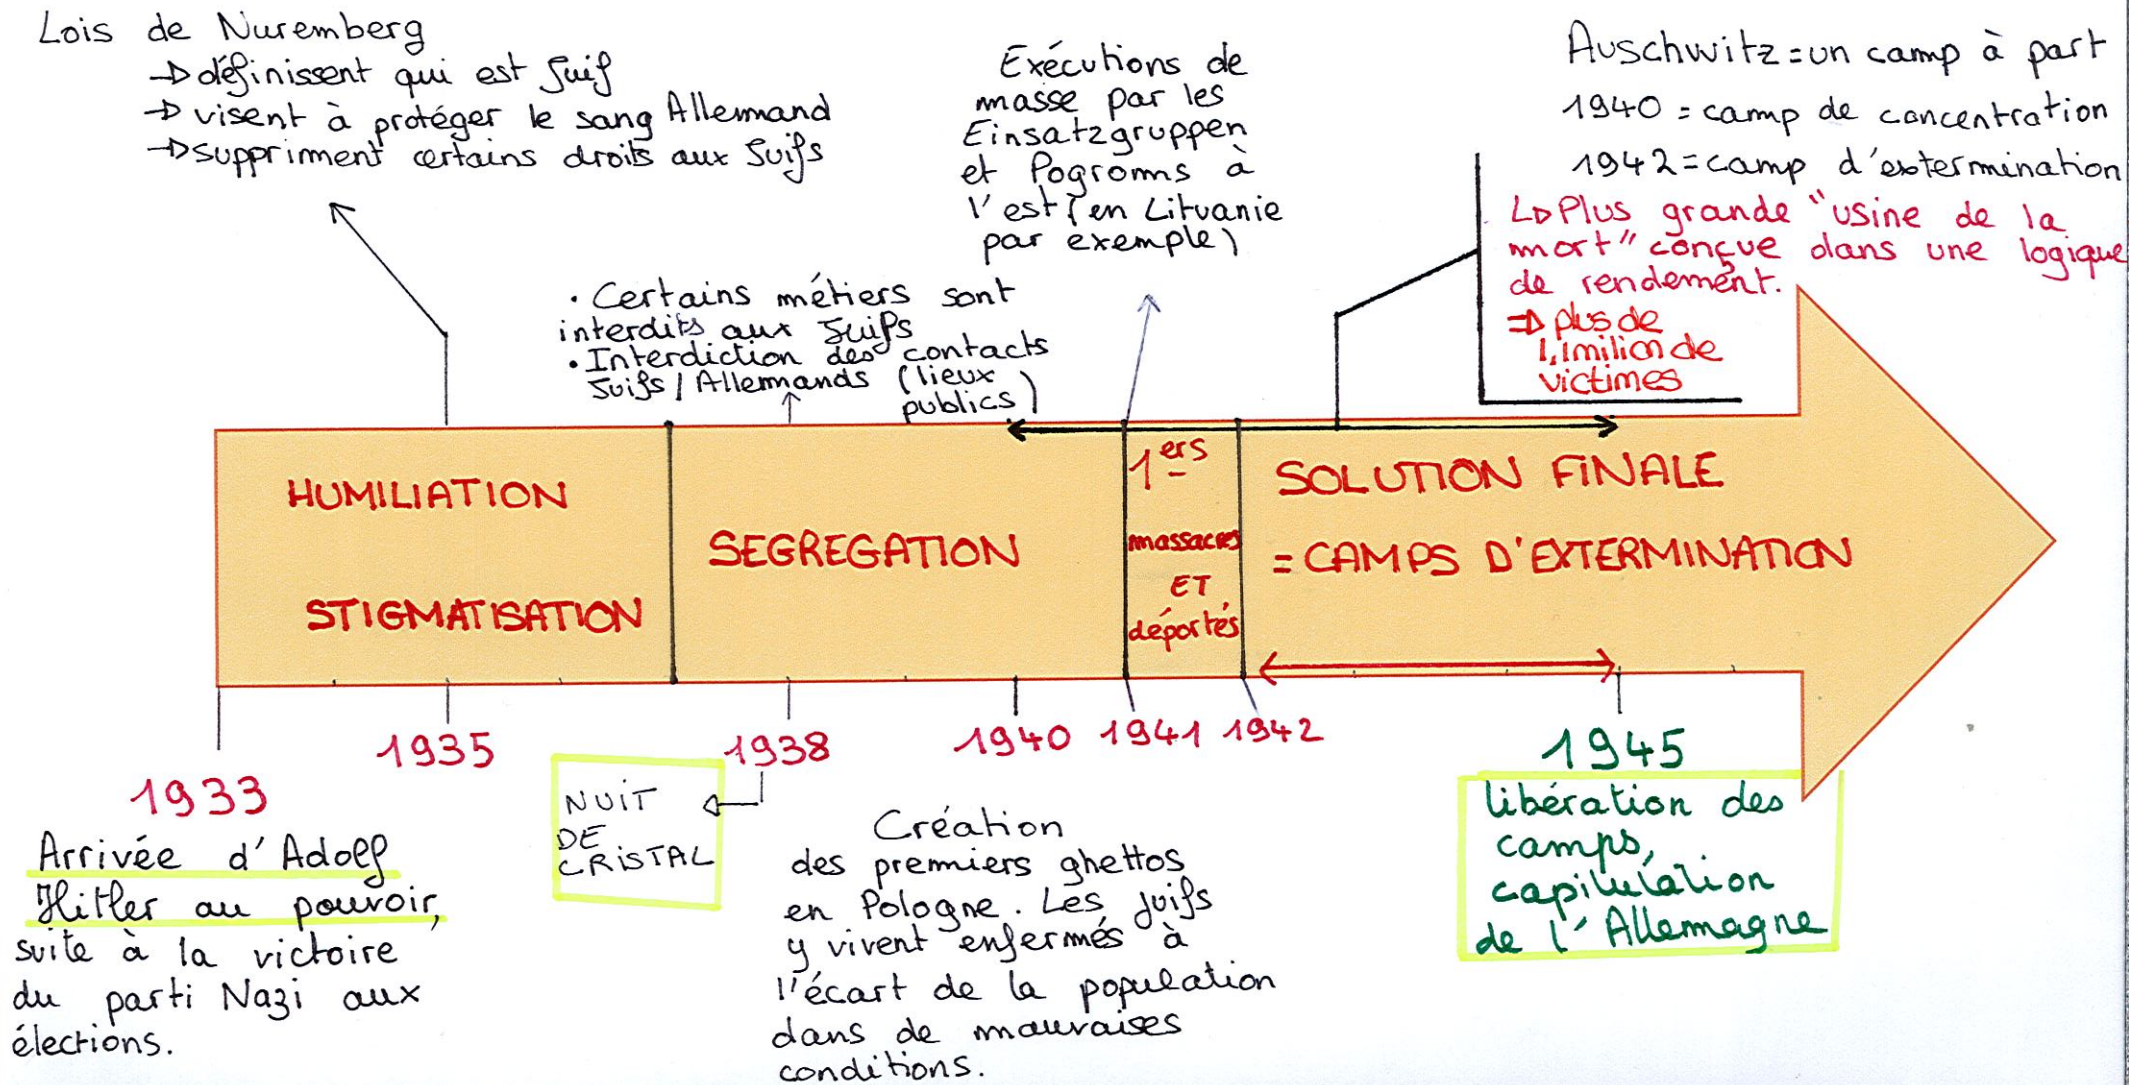 Lois de Nuremberg
→ définissent qui est Juif
→ visent à protéger le sang Allemand
→ suppriment certains droits aux Juifs
· Certains métiers sont
interdits aux Juifs
· Interdiction des contacts
Juifs / Allemands (lieux
publics)
Exécutions de
masse par les
Einsatzgruppen
et Pogroms à
l'est (en Lituanie
par exemple)
Auschwitz = un camp à part
1940 = camp de concentration
1942 = camp d'extermination
↳ Plus grande "usine de la
mort" conçue dans une logique
de rendement.
⇒ plus de
1,1 milion de
victimes
HUMILIATION
STIGMATISATION
SEGREGATION
1ers
massacres
ET
déportés
SOLUTION FINALE
= CAMPS D'EXTERMINATION
1933
1935
1938
1940
1941
1942
1945
Arrivée d'Adolf
Hitler au pouvoir,
suite à la victoire
du parti Nazi aux
élections.
NUIT
DE
CRISTAL
Création
des premiers ghettos
en Pologne. Les juifs
y vivent enfermés à
l'écart de la population
dans de mauvaises
conditions.
libération des
camps,
capitulation
de l'Allemagne